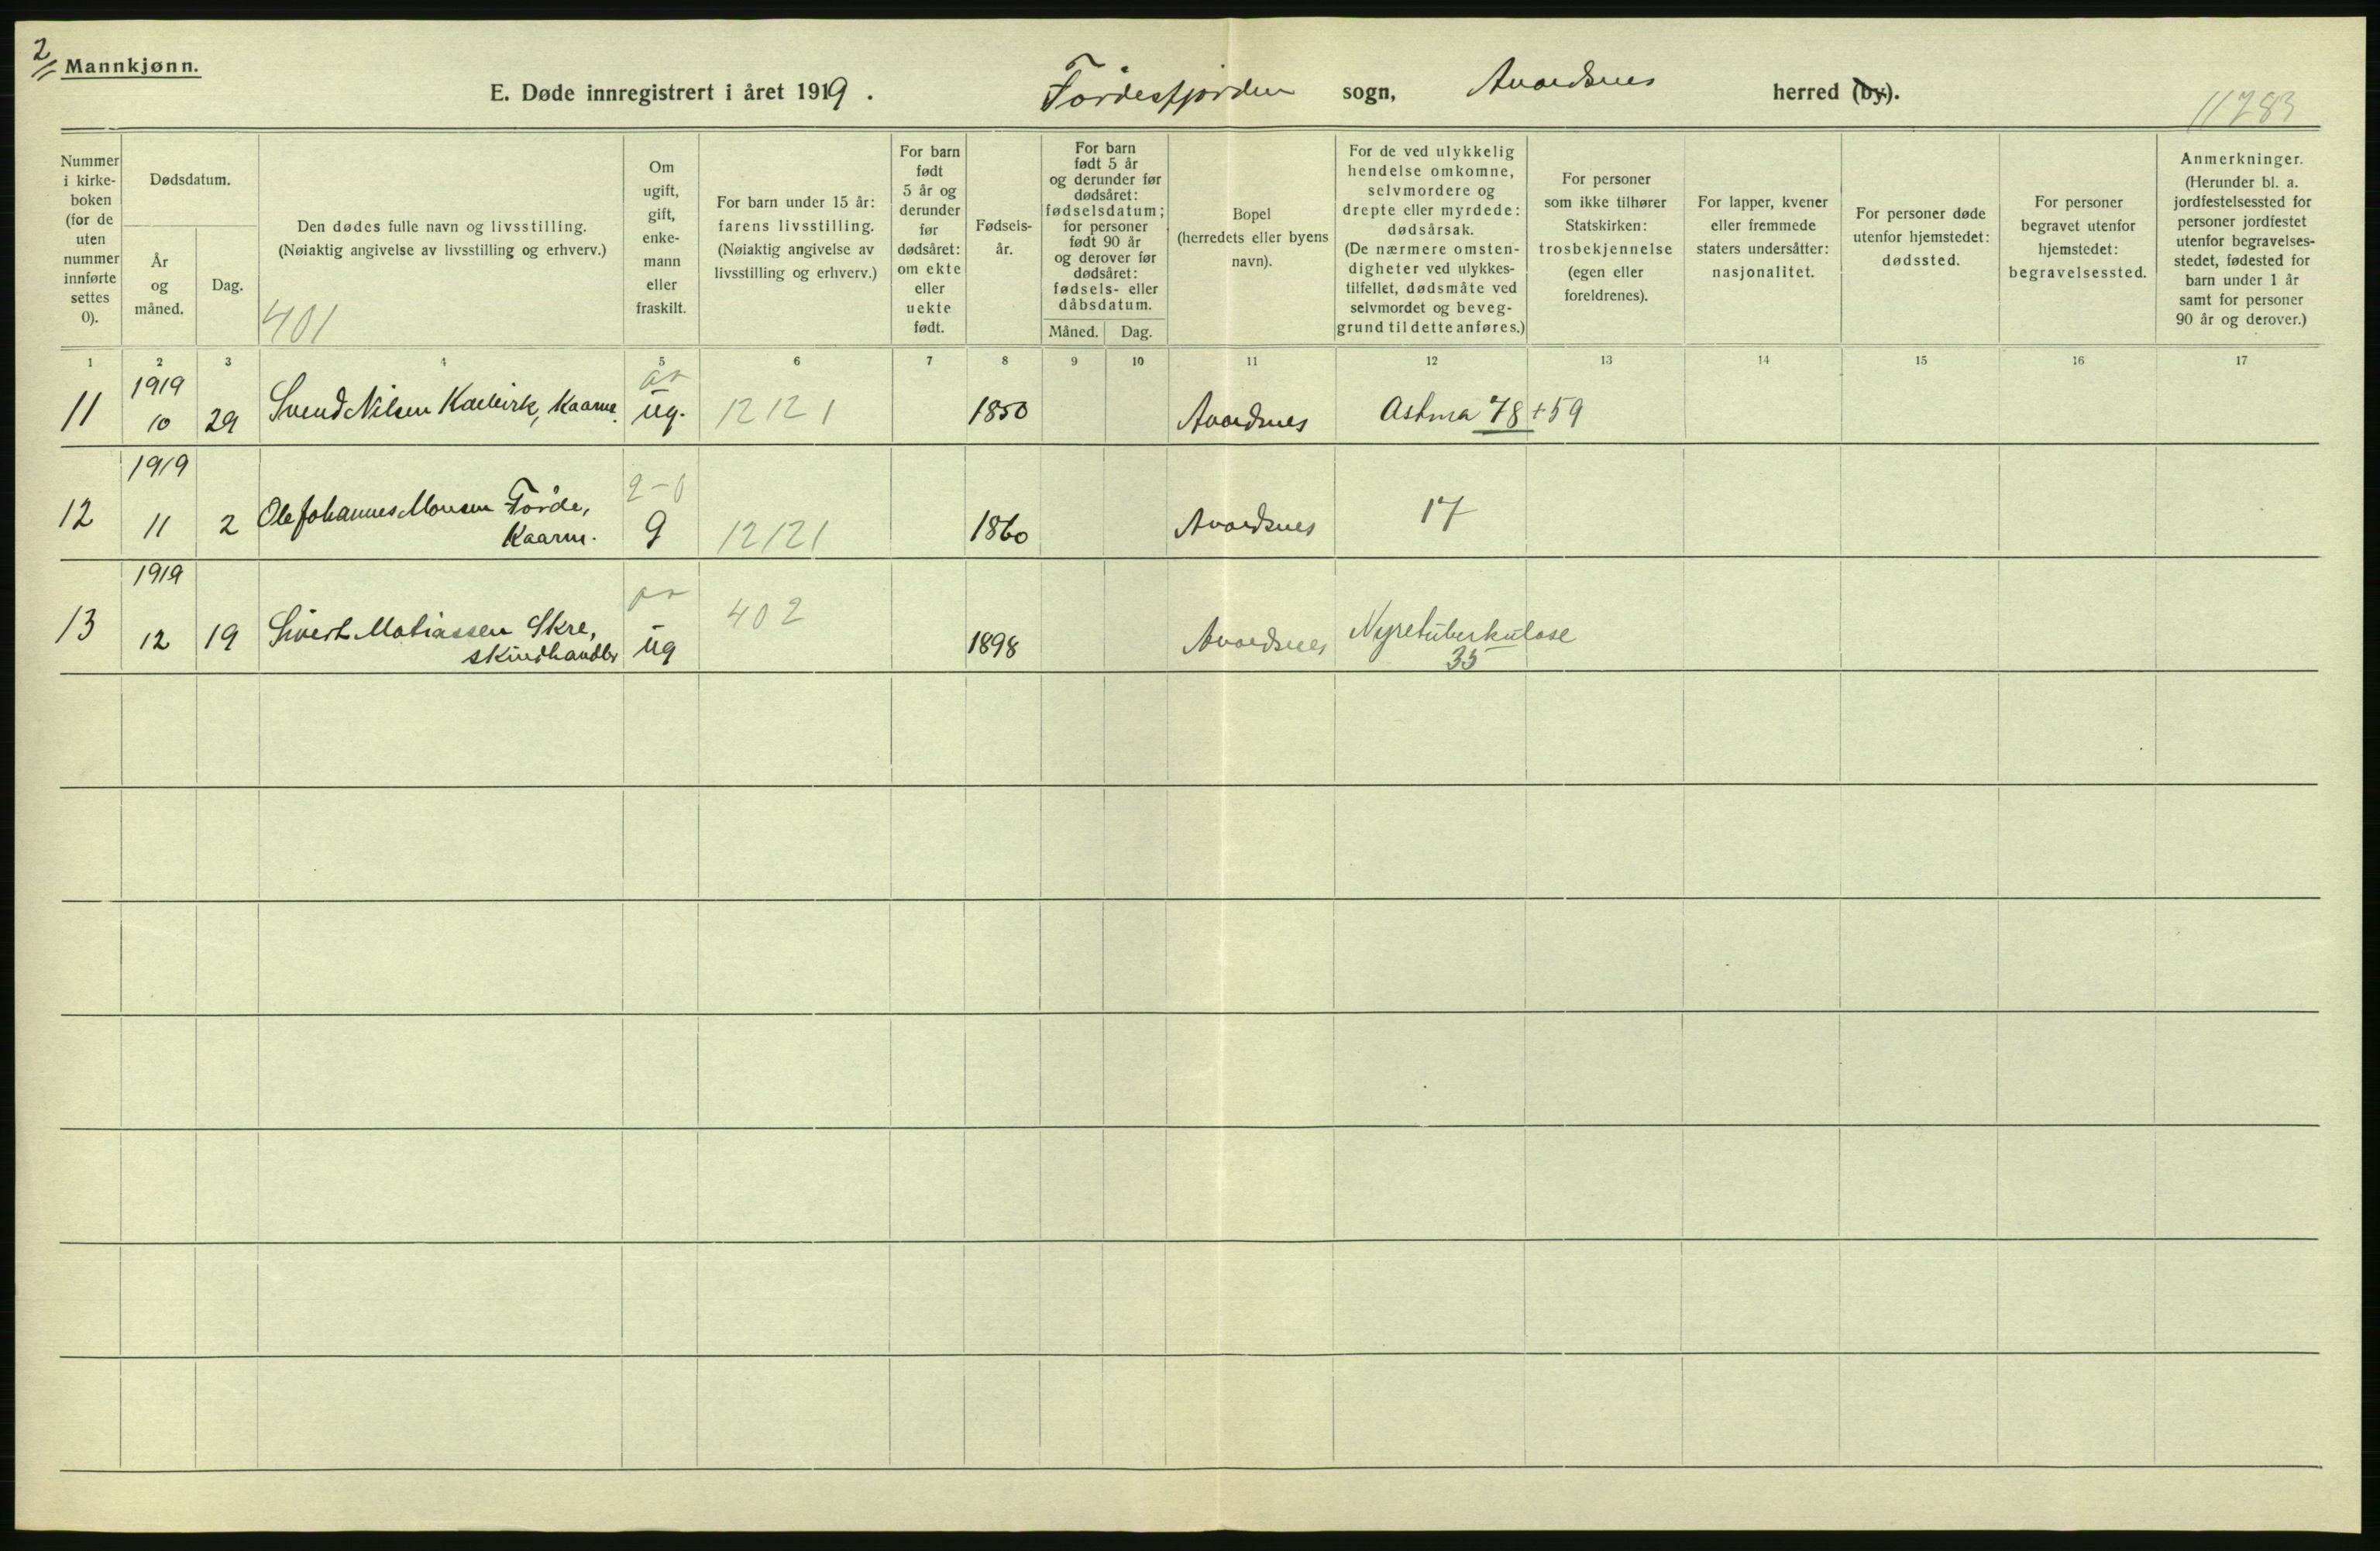 2/11 Mannkjønn.
E. Døde innregistrert i året 1919. Fördesfjorden sogn, Avaldsnes herred (by).
11783
Nummer i kirke-boken (for de uten nummer innførte settes 0).
Dødsdatum.
År og måned.
Dag.
Den dødes fulle navn og livsstilling.
(Nøiaktig angivelse av livsstilling og erhverv.)
401
Om ugift, gift, enke-mann eller fraskilt.
For barn under 15 år: farens livsstilling.
(Nøiaktig angivelse av livsstilling og erhverv.)
For barn født 5 år og derunder før dødsåret: om ekte eller uekte født.
Fødsels-år.
For barn født 5 år og derunder før dødsåret: fødselsdatum; for personer født 90 år og derover før dødsåret: fødsels- eller dåbsdatum.
Måned. Dag.
Bopel (herredets eller byens navn).
For de ved ulykkelig hendelse omkomne, selvmordere og drepte eller myrdede: dødsårsak. (De nærmere omsten-digheter ved ulykkes-tilfellet, dødsmåte ved selvmordet og beveg-grund til dette anføres.)
For personer som ikke tilhører Statskirken: trosbekjennelse (egen eller foreldrenes).
For lapper, kvener eller fremmede staters undersåtter: nasjonalitet.
For personer døde utenfor hjemstedet: dødssted.
For personer begravet utenfor hjemstedet: begravelsessted.
Anmerkninger. (Herunder bl. a. jordfestelsessted for personer jordfestet utenfor begravelses-stedet, fødested for barn under 1 år samt for personer 90 år og derover.)
1 2 3 4 5 6 7 8 9 10 11 12 13 14 15 16 17
1919
11 10 29 Svend Nilsen Kaarne. ug. 12121 1850 Avaldsnes Astma 78 + 59
1919
2-0
12 11 2 Ole Johannes Monsen Förde, g 12121 1860 Avaldsnes 17
Kaarm.
1919
402
13 12 19 Sivert Matiassen Skre, ug 1898 Avaldsnes Nyretuberkulose
skindhandler 35